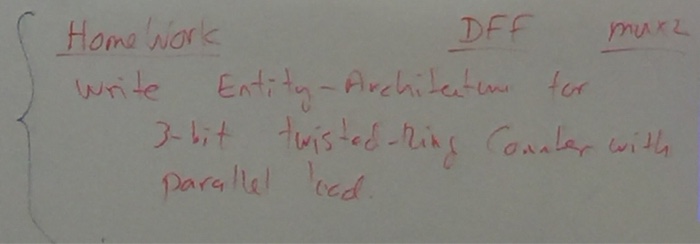 HomeWork DFF mux2
Write Entity-Architecture for
3-bit twisted-Ring Counter with
parallel load.